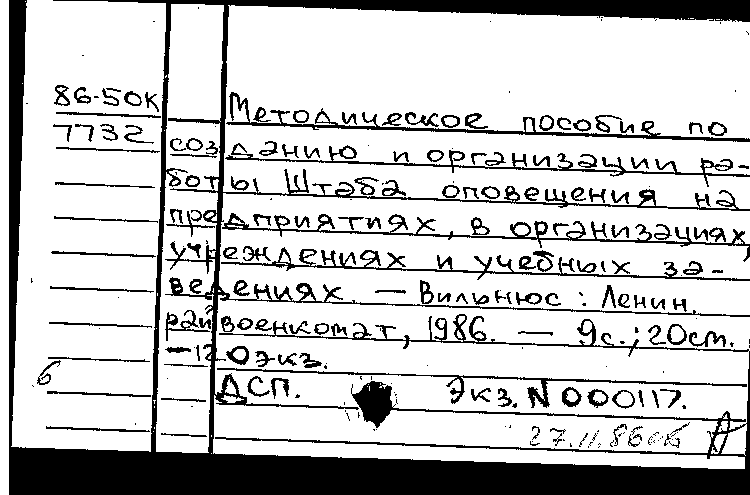 86-50К
7732
Методическое пособие по
созданию и организации ра-
боты Штаба оповещения на
предприятиях, в организациях,
учреждениях и учебных за-
ведениях. — Вильнюс: Ленин.
райвоенкомат, 1986. — 9с.; 20см.
—120экз.
б
ДСП. Экз. N 000117.
27.11.86